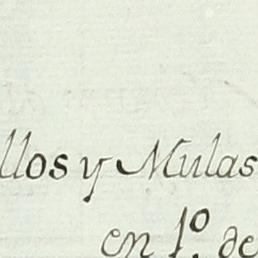 llos y Mulas
en 1º. de